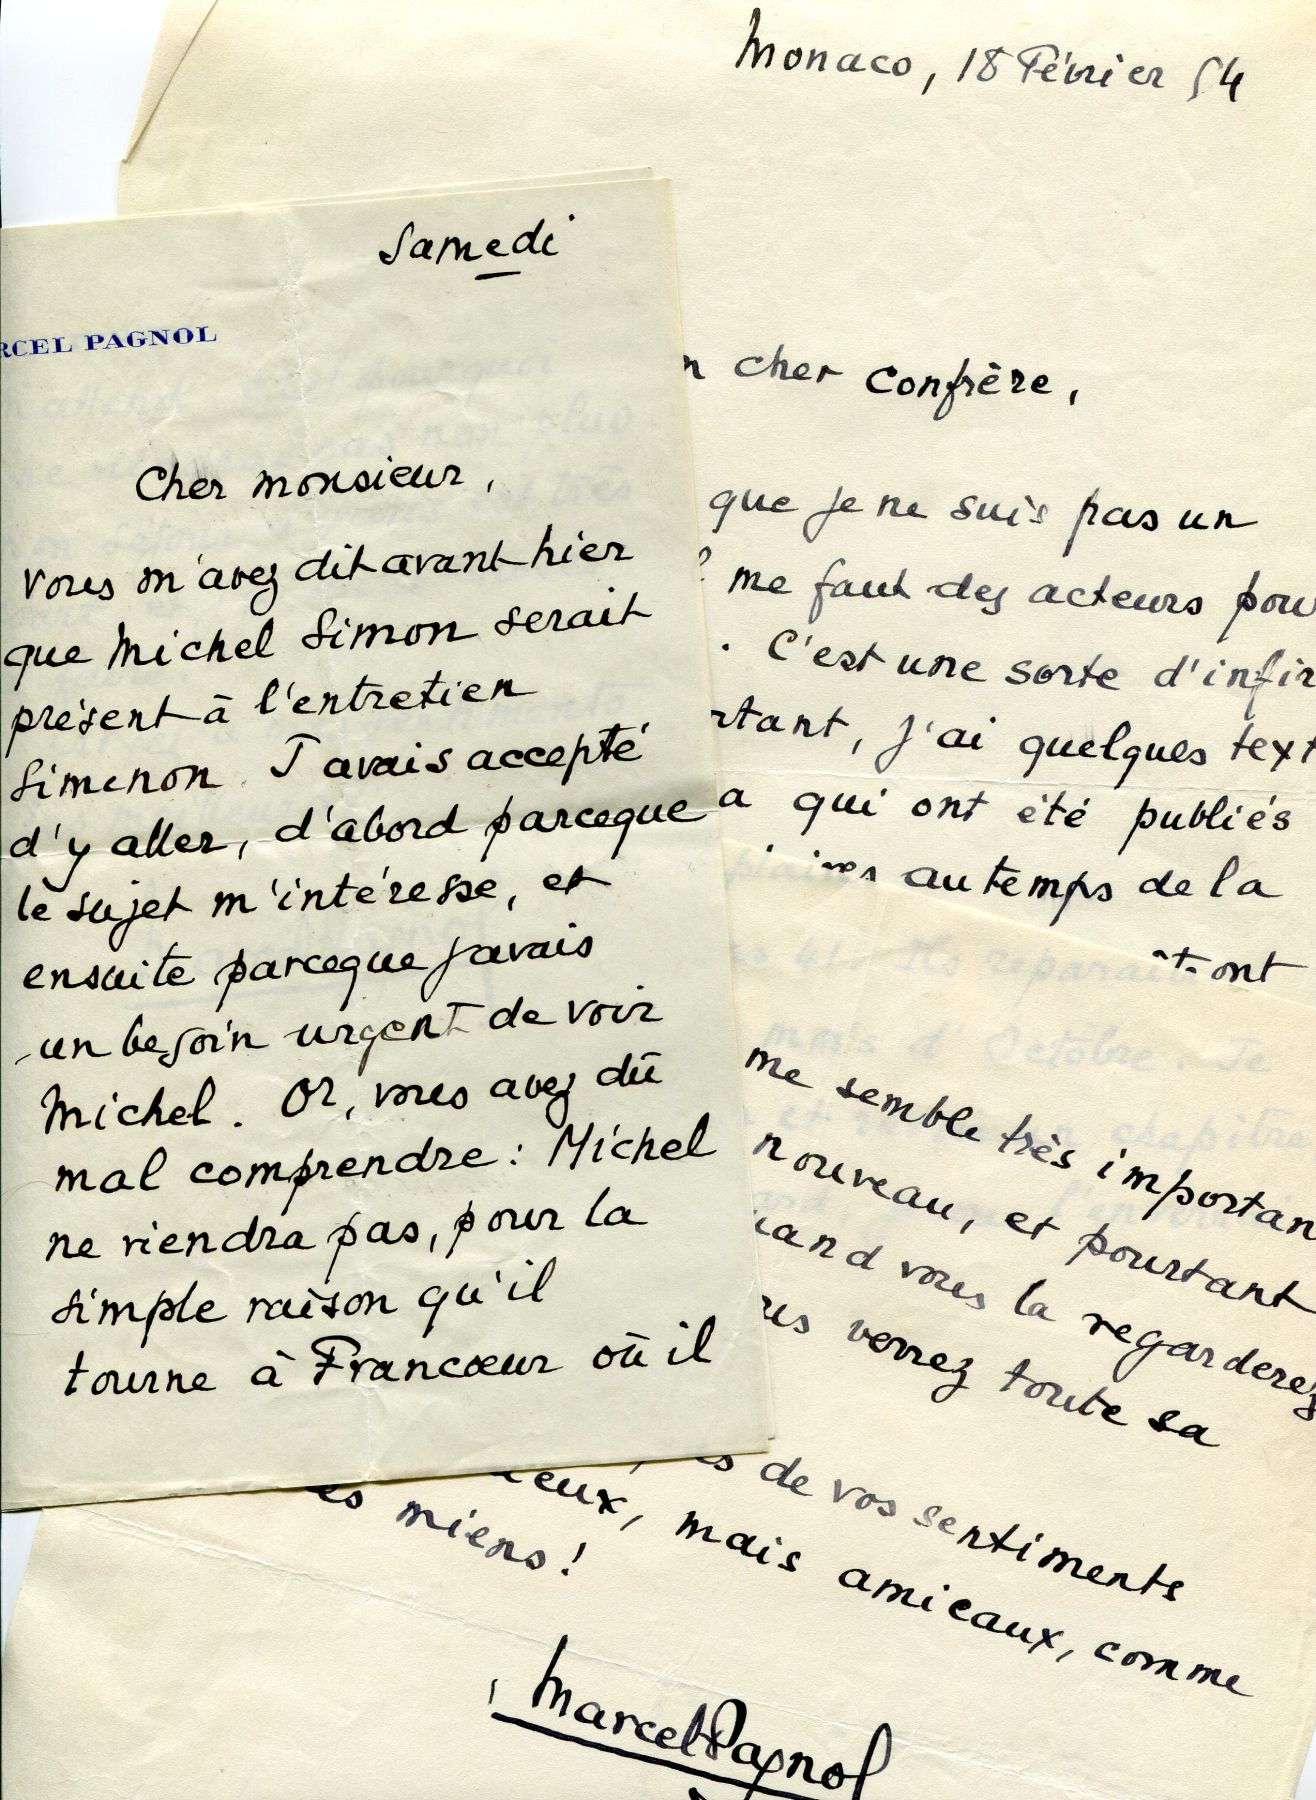 Samedi
RCEL PAGNOL
Cher monsieur,
vous m'avez dit avant hier
que Michel Simon serait
présent à l'entretien
Simenon. J'avais accepté
d'y aller, d'abord parceque
le sujet m'intéresse, et
ensuite parceque j'avais
un besoin urgent de voir
Michel. Or, vous avez dû
mal comprendre : Michel
ne viendra pas, pour la
simple raison qu'il
tourne à Francœur où il
Monaco, 18 Février 54
n cher confrère,
que je ne suis pas un
me faut des acteurs pou
. C'est une sorte d'infir
rtant, j'ai quelques text
a qui ont été publiés
plaires au temps de la
41. Ils reparaîtront
mois d'Octobre. Je
et chapitre
me semble très importan
nouveau, et pourtant
uand vous la regarderez
us verrez toute sa
es de vos sentiments
ieux, mais amicaux, comme
es miens !
Marcel Pagnol